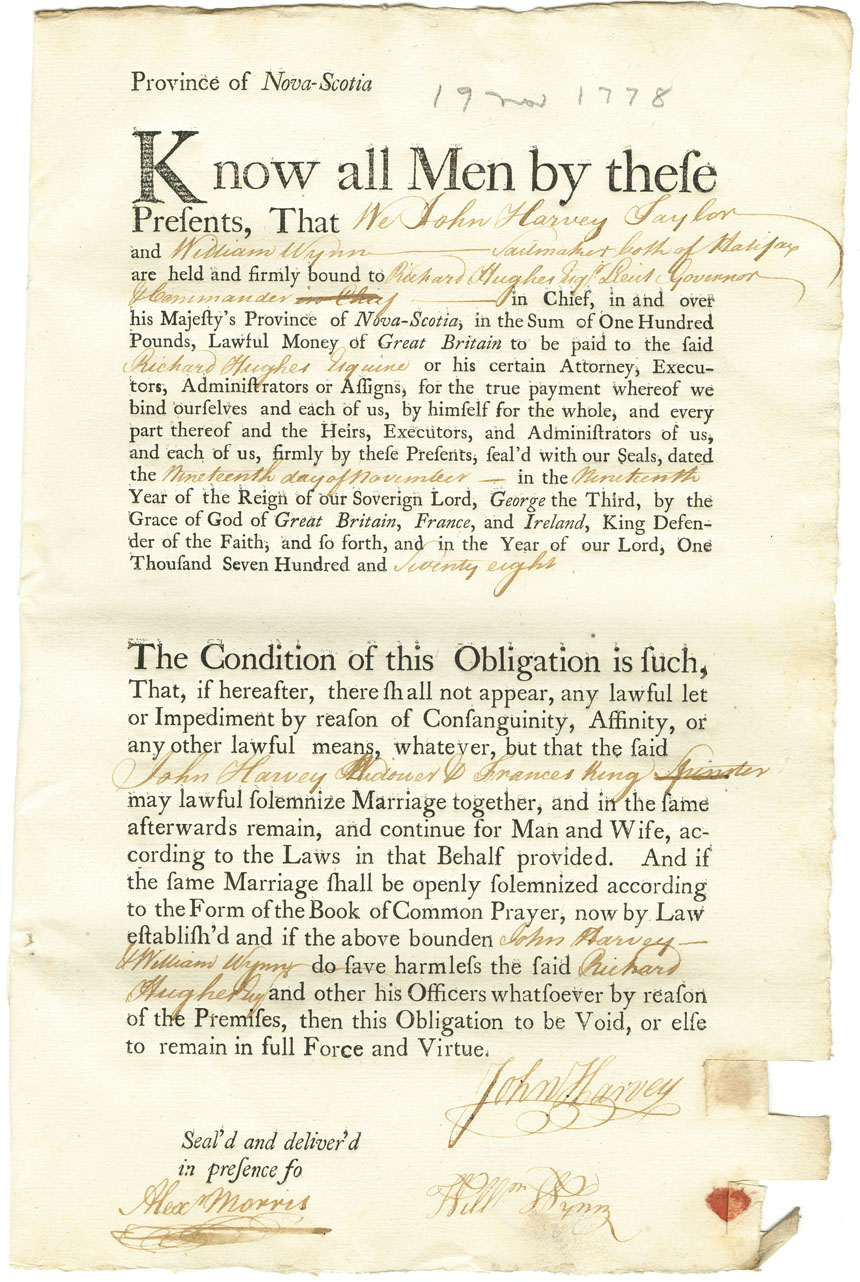 Province of Nova-Scotia
19 nov 1778
Know all Men by theſe
Preſents, That We John Harvey Taylor
and William Wynn Sailmaker both of Halifax
are held and firmly bound to Richard Hughes Esqr. Lieut. Governor
& Commander in Chief in Chief, in and over
his Majeſty's Province of Nova-Scotia, in the Sum of One Hundred
Pounds, Lawful Money of Great Britain to be paid to the ſaid
Richard Hughes Esquire or his certain Attorney, Execu-
tors, Adminiſtrators or Aſſigns, for the true payment whereof we
bind ourſelves and each of us, by himſelf for the whole, and every
part thereof and the Heirs, Executors, and Adminiſtrators of us,
and each of us, firmly by theſe Preſents, ſeal'd with our Seals, dated
the Nineteenth day of November — in the Nineteenth
Year of the Reign of our Soverign Lord, George the Third, by the
Grace of God of Great Britain, France, and Ireland, King Defen-
der of the Faith, and ſo forth, and in the Year of our Lord, One
Thouſand Seven Hundred and Seventy eight
The Condition of this Obligation is ſuch,
That, if hereafter, there ſhall not appear, any lawful let
or Impediment by reaſon of Conſanguinity, Affinity, or
any other lawful means, whatever, but that the ſaid
John Harvey Widower & Frances King Spinster
may lawful ſolemnize Marriage together, and in the ſame
afterwards remain, and continue for Man and Wife, ac-
cording to the Laws in that Behalf provided. And if
the ſame Marriage ſhall be openly ſolemnized according
to the Form of the Book of Common Prayer, now by Law
eſtabliſh'd and if the above bounden John Harvey —
& William Wynn do ſave harmleſs the ſaid Richard
Hughes Esqr and other his Officers whatſoever by reaſon
of the Premiſes, then this Obligation to be Void, or elſe
to remain in full Force and Virtue.
John Harvey
Seal'd and deliver'd
in preſence fo
Alexr Morris
Willm Wynn